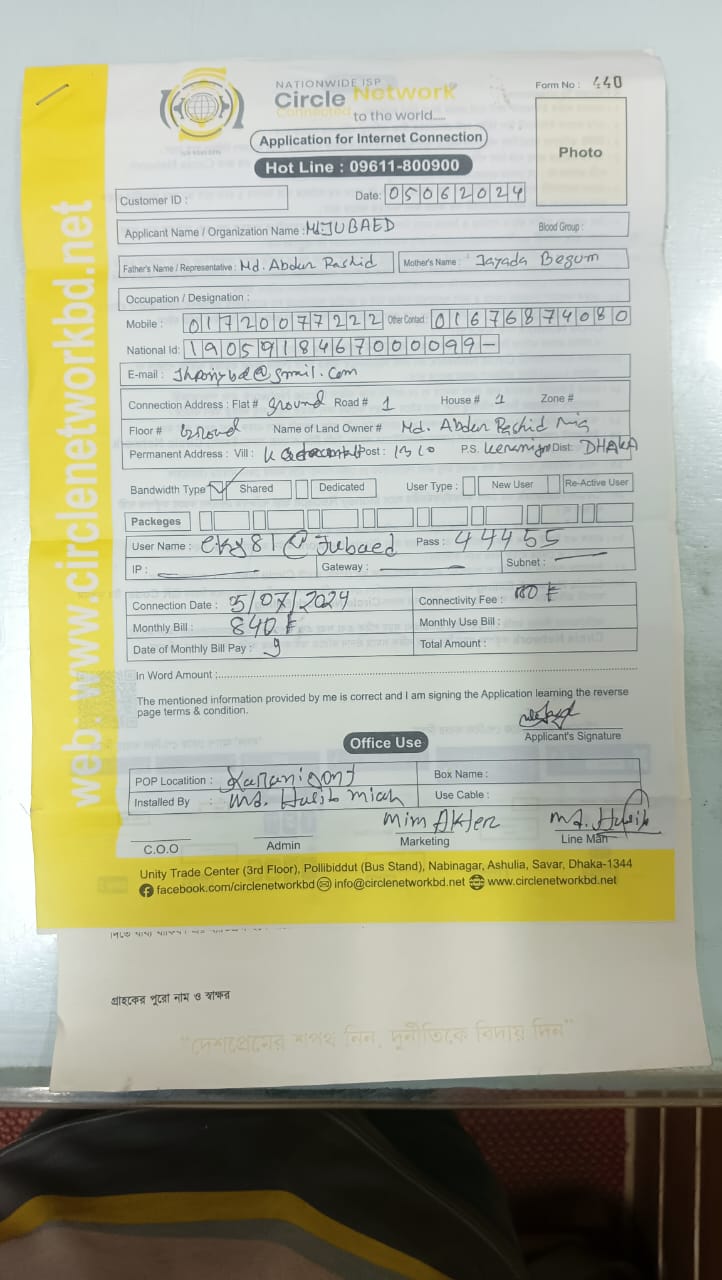 NATIONWIDE ISP
Circle Network
Connected to the world.....
Form No : 440
Application for Internet Connection
Hot Line : 09611-800900
Photo
Customer ID :
Date: 05062024
Applicant Name / Organization Name : Md JUBAED Blood Group :
Father's Name / Representative : Md. Abdur Rashid Mother's Name : Jayada Begum
Occupation / Designation :
Mobile : 01720077222 Other Contact : 01676874080
National Id: 1905918467000099-
E-mail : @gmail.com
Connection Address : Flat # ground Road # 1 House # 1 Zone #
Floor # Name of Land Owner # Md. Abdur Rashid
Permanent Address : Vill : Post : 1310 P.S. Dist: DHAKA
Bandwidth Type Shared Dedicated User Type : New User Re-Active User
Packeges
User Name : @Jubaed Pass : 44455
IP : Gateway : Subnet :
Connection Date : 5/07/2024 Connectivity Fee :
Monthly Bill : 840 Monthly Use Bill :
Date of Monthly Bill Pay : 9 Total Amount :
In Word Amount :
The mentioned information provided by me is correct and I am signing the Application learning the reverse
page terms & condition.
Applicant's Signature
Office Use
POP Locatition : Karanigonj Box Name :
Installed By Md. Hasib Miah Use Cable :
Mim Akter Md. Hasib
C.O.O Admin Marketing Line Man
Unity Trade Center (3rd Floor), Pollibiddut (Bus Stand), Nabinagar, Ashulia, Savar, Dhaka-1344
facebook.com/circlenetworkbd info@circlenetworkbd.net www.circlenetworkbd.net
web: www.circlenetworkbd.net
গ্রাহকের পুরো নাম ও স্বাক্ষর
"দেশপ্রেমের শপথ নিন, দুর্নীতিকে বিদায় দিন"